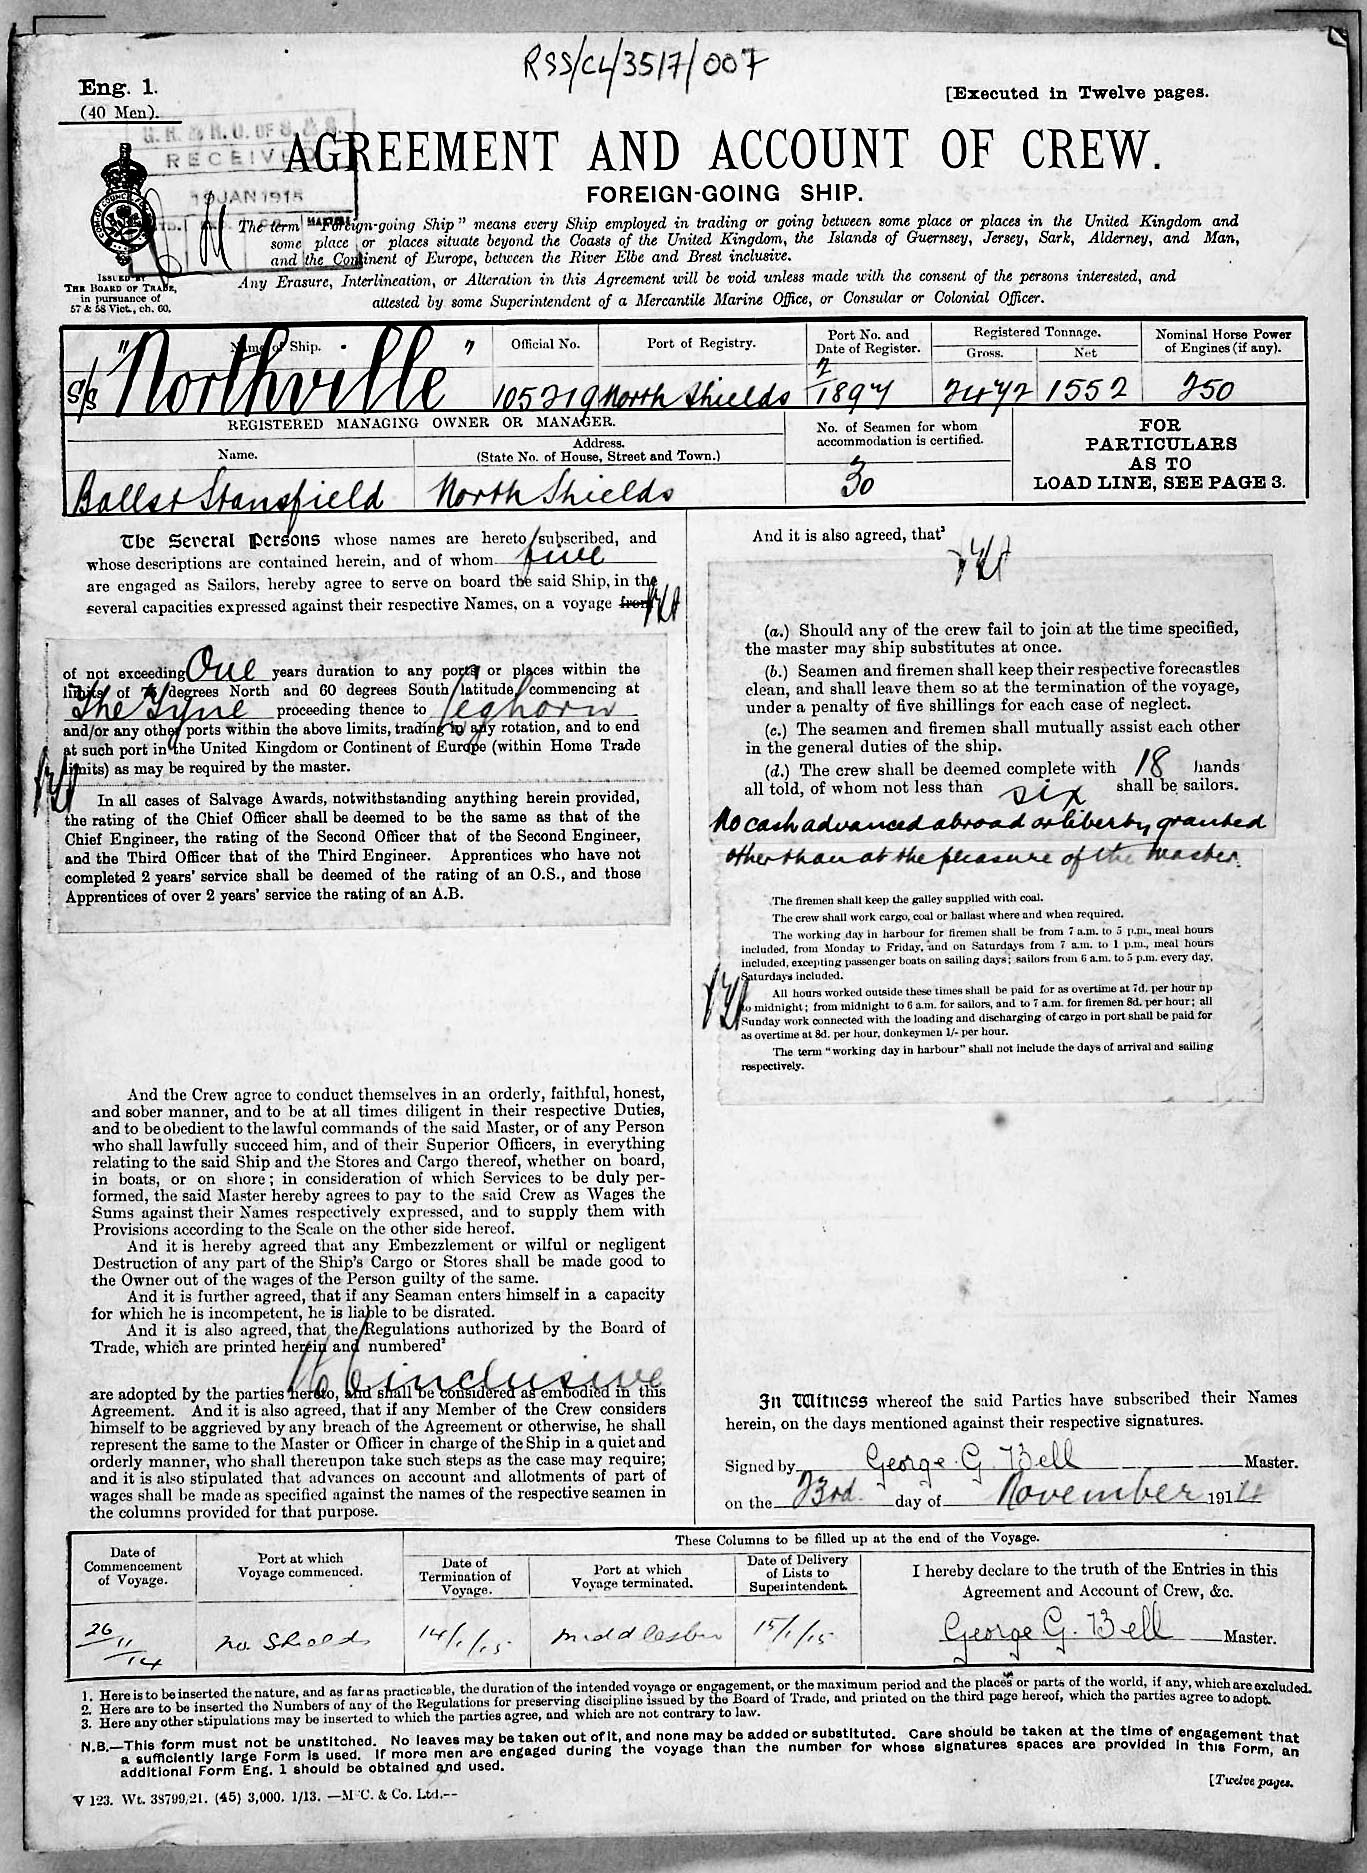 RSS/CL/3517/007
Eng. 1.
(40 Men).
[Executed in Twelve pages.
G. R. & R. O. OF S. & S.
RECEIVED
19 JAN 1915
AGREEMENT AND ACCOUNT OF CREW.
FOREIGN-GOING SHIP.
The term "Foreign-going Ship" means every Ship employed in trading or going between some place or places in the United Kingdom and
some place or places situate beyond the Coasts of the United Kingdom, the Islands of Guernsey, Jersey, Sark, Alderney, and Man,
and the Continent of Europe, between the River Elbe and Brest inclusive.
Any Erasure, Interlineation, or Alteration in this Agreement will be void unless made with the consent of the persons interested, and
attested by some Superintendent of a Mercantile Marine Office, or Consular or Colonial Officer.
ISSUED BY
THE BOARD OF TRADE,
in pursuance of
57 & 58 Vict., ch. 60.
Name of Ship.
Official No.
Port of Registry.
Port No. and
Date of Register.
Registered Tonnage.
Gross.
Net
Nominal Horse Power
of Engines (if any).
S/S "Northville"
105219
North Shields
2/1897
2472
1552
250
REGISTERED MANAGING OWNER OR MANAGER.
Name.
Address.
(State No. of House, Street and Town.)
No. of Seamen for whom
accommodation is certified.
FOR
PARTICULARS
AS TO
LOAD LINE, SEE PAGE 3.
Balls & Stansfield
North Shields
30
The Several Persons whose names are hereto subscribed, and
whose descriptions are contained herein, and of whom five
are engaged as Sailors, hereby agree to serve on board the said Ship, in the
several capacities expressed against their respective Names, on a voyage from
of not exceeding One years duration to any ports or places within the
limits of 75 degrees North and 60 degrees South latitude, commencing at
The Tyne proceeding thence to Leghorn
and/or any other ports within the above limits, trading in any rotation, and to end
at such port in the United Kingdom or Continent of Europe (within Home Trade
limits) as may be required by the master.
In all cases of Salvage Awards, notwithstanding anything herein provided,
the rating of the Chief Officer shall be deemed to be the same as that of the
Chief Engineer, the rating of the Second Officer that of the Second Engineer,
and the Third Officer that of the Third Engineer. Apprentices who have not
completed 2 years' service shall be deemed of the rating of an O.S., and those
Apprentices of over 2 years' service the rating of an A.B.
And the Crew agree to conduct themselves in an orderly, faithful, honest,
and sober manner, and to be at all times diligent in their respective Duties,
and to be obedient to the lawful commands of the said Master, or of any Person
who shall lawfully succeed him, and of their Superior Officers, in everything
relating to the said Ship and the Stores and Cargo thereof, whether on board,
in boats, or on shore; in consideration of which Services to be duly per-
formed, the said Master hereby agrees to pay to the said Crew as Wages the
Sums against their Names respectively expressed, and to supply them with
Provisions according to the Scale on the other side hereof.
And it is hereby agreed that any Embezzlement or wilful or negligent
Destruction of any part of the Ship's Cargo or Stores shall be made good to
the Owner out of the wages of the Person guilty of the same.
And it is further agreed, that if any Seaman enters himself in a capacity
for which he is incompetent, he is liable to be disrated.
And it is also agreed, that the Regulations authorized by the Board of
Trade, which are printed herein and numbered²
1 to 6 inclusive
are adopted by the parties hereto, and shall be considered as embodied in this
Agreement. And it is also agreed, that if any Member of the Crew considers
himself to be aggrieved by any breach of the Agreement or otherwise, he shall
represent the same to the Master or Officer in charge of the Ship in a quiet and
orderly manner, who shall thereupon take such steps as the case may require;
and it is also stipulated that advances on account and allotments of part of
wages shall be made as specified against the names of the respective seamen in
the columns provided for that purpose.
And it is also agreed, that³
(a.) Should any of the crew fail to join at the time specified,
the master may ship substitutes at once.
(b.) Seamen and firemen shall keep their respective forecastles
clean, and shall leave them so at the termination of the voyage,
under a penalty of five shillings for each case of neglect.
(c.) The seamen and firemen shall mutually assist each other
in the general duties of the ship.
(d.) The crew shall be deemed complete with 18 hands
all told, of whom not less than six shall be sailors.
No cash advanced abroad or liberty granted
other than at the pleasure of the Master.
The firemen shall keep the galley supplied with coal.
The crew shall work cargo, coal or ballast where and when required.
The working day in harbour for firemen shall be from 7 a.m. to 5 p.m., meal hours
included, from Monday to Friday, and on Saturdays from 7 a.m. to 1 p.m., meal hours
included, excepting passenger boats on sailing days; sailors from 6 a.m. to 5 p.m. every day,
Saturdays included.
All hours worked outside these times shall be paid for as overtime at 7d. per hour up
to midnight; from midnight to 6 a.m. for sailors, and to 7 a.m. for firemen 8d. per hour; all
Sunday work connected with the loading and discharging of cargo in port shall be paid for
as overtime at 8d. per hour, donkeymen 1/- per hour.
The term "working day in harbour" shall not include the days of arrival and sailing
respectively.
In Witness whereof the said Parties have subscribed their Names
herein, on the days mentioned against their respective signatures.
Signed by George G. Bell Master.
on the 23rd day of November 1914
These Columns to be filled up at the end of the Voyage.
Date of
Commencement
of Voyage.
Port at which
Voyage commenced.
Date of
Termination of
Voyage.
Port at which
Voyage terminated.
Date of Delivery
of Lists to
Superintendent.
I hereby declare to the truth of the Entries in this
Agreement and Account of Crew, &c.
26/11/14
No Shields
14/1/15
Middlesbro
15/1/15
George G. Bell Master.
1. Here is to be inserted the nature, and as far as practicable, the duration of the intended voyage or engagement, or the maximum period and the places or parts of the world, if any, which are excluded.
2. Here are to be inserted the Numbers of any of the Regulations for preserving discipline issued by the Board of Trade, and printed on the third page hereof, which the parties agree to adopt.
3. Here any other stipulations may be inserted to which the parties agree, and which are not contrary to law.
N.B.—This form must not be unstitched. No leaves may be taken out of it, and none may be added or substituted. Care should be taken at the time of engagement that
a sufficiently large Form is used. If more men are engaged during the voyage than the number for whose signatures spaces are provided in this Form, an
additional Form Eng. 1 should be obtained and used.
[Twelve pages.
V 123. Wt. 38799/21. (45) 3,000. 1/13. —M'C. & Co. Ltd.--